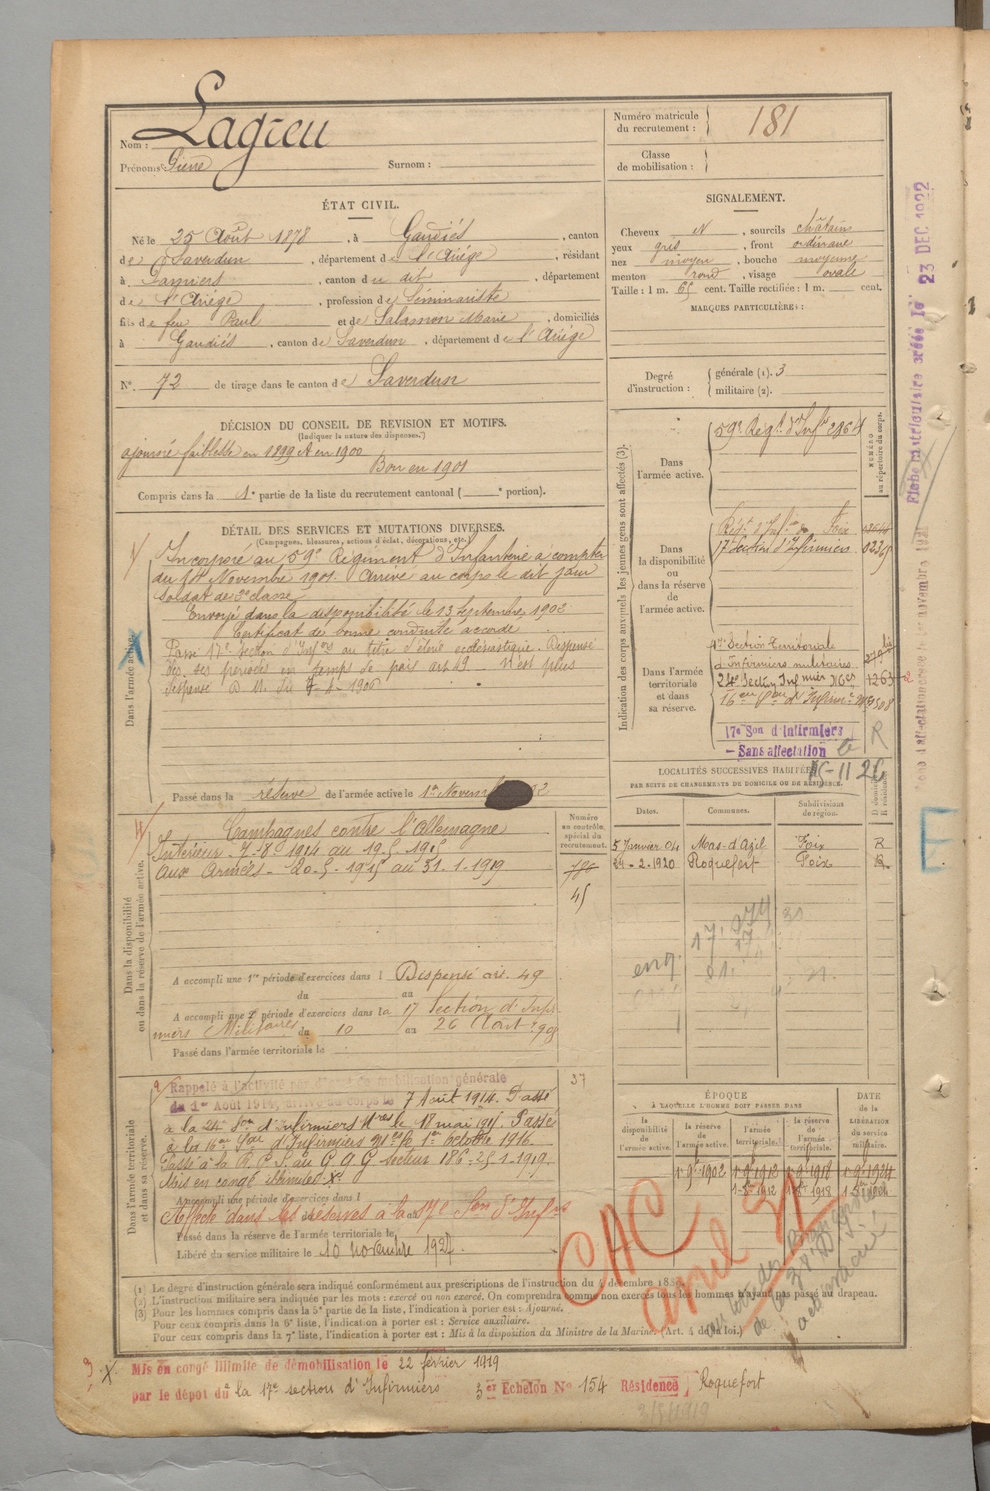 Nom : Lagreu
Prénoms : Pierre Surnom :
Numéro matricule du recrutement : 181
Classe de mobilisation :
ÉTAT CIVIL.
Né le 25 Août 1878, à Gaudiés, canton
de Saverdun, département de l'Ariège, résidant
à Pamiers, canton de dit, département
de l'Ariège, profession de Séminariste
fils de feu Paul et de Salamon Marie, domiciliés
à Gaudiés, canton de Saverdun, département de l'Ariège
N° 72 de tirage dans le canton de Saverdun
SIGNALEMENT.
Cheveux N, sourcils châtain
yeux gris, front ordinaire
nez moyen, bouche moyenne
menton rond, visage ovale
Taille : 1 m. 65 cent. Taille rectifiée : 1 m. cent.
MARQUES PARTICULIÈRES :
Degré d'instruction : générale (1). 3
militaire (2).
DÉCISION DU CONSEIL DE REVISION ET MOTIFS.
(Indiquer la nature des dispenses.)
ajourné faiblesse en 1899 et en 1900
Bon en 1901
Compris dans la 1e partie de la liste du recrutement cantonal ( e portion).
DÉTAIL DES SERVICES ET MUTATIONS DIVERSES.
(Campagnes, blessures, actions d'éclat, décorations, etc.)
Dans l'armée active.
Incorporé au 59e Régiment d'Infanterie à compter
du 1er Novembre 1901. Arrivé au corps le dit jour
Soldat de 2e classe
Envoyé dans la disponibilité le 13 Septembre 1902
Certificat de bonne conduite accordé
Passé 17e Section d'Infers au titre d'élève ecclésiastique. Dispensé
de ses périodes en temps de paix art 49. N'est plus
dispensé
Passé dans la réserve de l'armée active le 1er Novem 2
Indication des corps auxquels les jeunes gens sont affectés (3).
NUMÉRO au répertoire du corps.
Dans l'armée active.
59e Régt d'Infie 2964
Dans la disponibilité ou dans la réserve de l'armée active.
Régt d'Infie de Foix
17e Section d'Infirmiers 02365
Dans l'armée territoriale et dans sa réserve.
Section Territoriale
d'Infirmiers militaires.
24e Section Infirmiers Mres 1263
17e Son d'Infirmiers
- Sans affectation R
15-11 26
LOCALITÉS SUCCESSIVES HABITÉES
PAR SUITE DE CHANGEMENTS DE DOMICILE OU DE RÉSIDENCE.
Dates. Communes. Subdivisions de région. D domicile R résidence.
5 Janvier 04 Mas-d'Azil Foix R
24-2-1920 Roquefort Foix R
Dans la disponibilité ou dans la réserve de l'armée active.
Numéro au contrôle spécial du recrutement.
45
Campagnes contre l'Allemagne
Intérieur - 7-8-1914 au 19-5-1915
Aux Armées - 20-5-1915 au 31-1-1919
A accompli une 1re période d'exercices dans l Dispensé art. 49
du au
A accompli une 2e période d'exercices dans la 17 Section d'Infir
miers Militaires du 10 au 26 Août 1908
Passé dans l'armée territoriale le
Dans l'armée territoriale et dans sa réserve.
37
Rappelé à l'activité par décret de mobilisation générale
du 1er Août 1914, arrivé au corps le 7 Août 1914. Passé
à la 24e Son d'Infirmiers Mres le 18 mai 1915. Passé
à la 16e Son d'Infirmiers Mres le 1er octobre 1916.
Passé à la R.P.S. au G A G secteur 186 - 25-1-1919.
Mis en congé illimité X
Accompli une période d'exercices dans l
Affecté dans les réserves à la 17e Son d'Infirs
Passé dans la réserve de l'armée territoriale le
Libéré du service militaire le 10 novembre 1927.
ÉPOQUE
A LAQUELLE L'HOMME DOIT PASSER DANS
la disponibilité de l'armée active.
la réserve de l'armée active.
l'armée territoriale.
la réserve de l'armée territoriale.
DATE de la LIBÉRATION du service militaire.
1er 9bre 1902 1er 9bre 1912 1er 9bre 1918 1er 9bre 1924
CAC
avril 31
(1) Le degré d'instruction générale sera indiqué conformément aux prescriptions de l'instruction du 4 décembre 1889.
(2) L'instruction militaire sera indiquée par les mots : exercé ou non exercé. On comprendra comme non exercés tous les hommes n'ayant pas passé au drapeau.
(3) Pour les hommes compris dans la 5e partie de la liste, l'indication à porter est : Ajourné.
Pour ceux compris dans la 6e liste, l'indication à porter est : Service auxiliaire.
Pour ceux compris dans la 7e liste, l'indication à porter est : Mis à la disposition du Ministre de la Marine. (Art. 4 de la loi.)
X Mis en congé illimité de démobilisation le 22 février 1919
par le dépôt du la 17e section d'Infirmiers 3er Echelon No 154 Résidence Roquefort
Fiche matriculaire créée le 23 DEC 1922